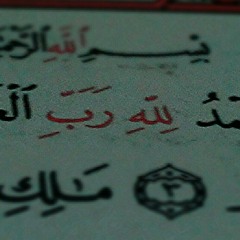 بِسْمِ ٱللَّهِ ٱلرَّحْمَٰ
مْدُ لِلَّهِ رَبِّ ٱلْعَ
٣ مَٰلِكِ